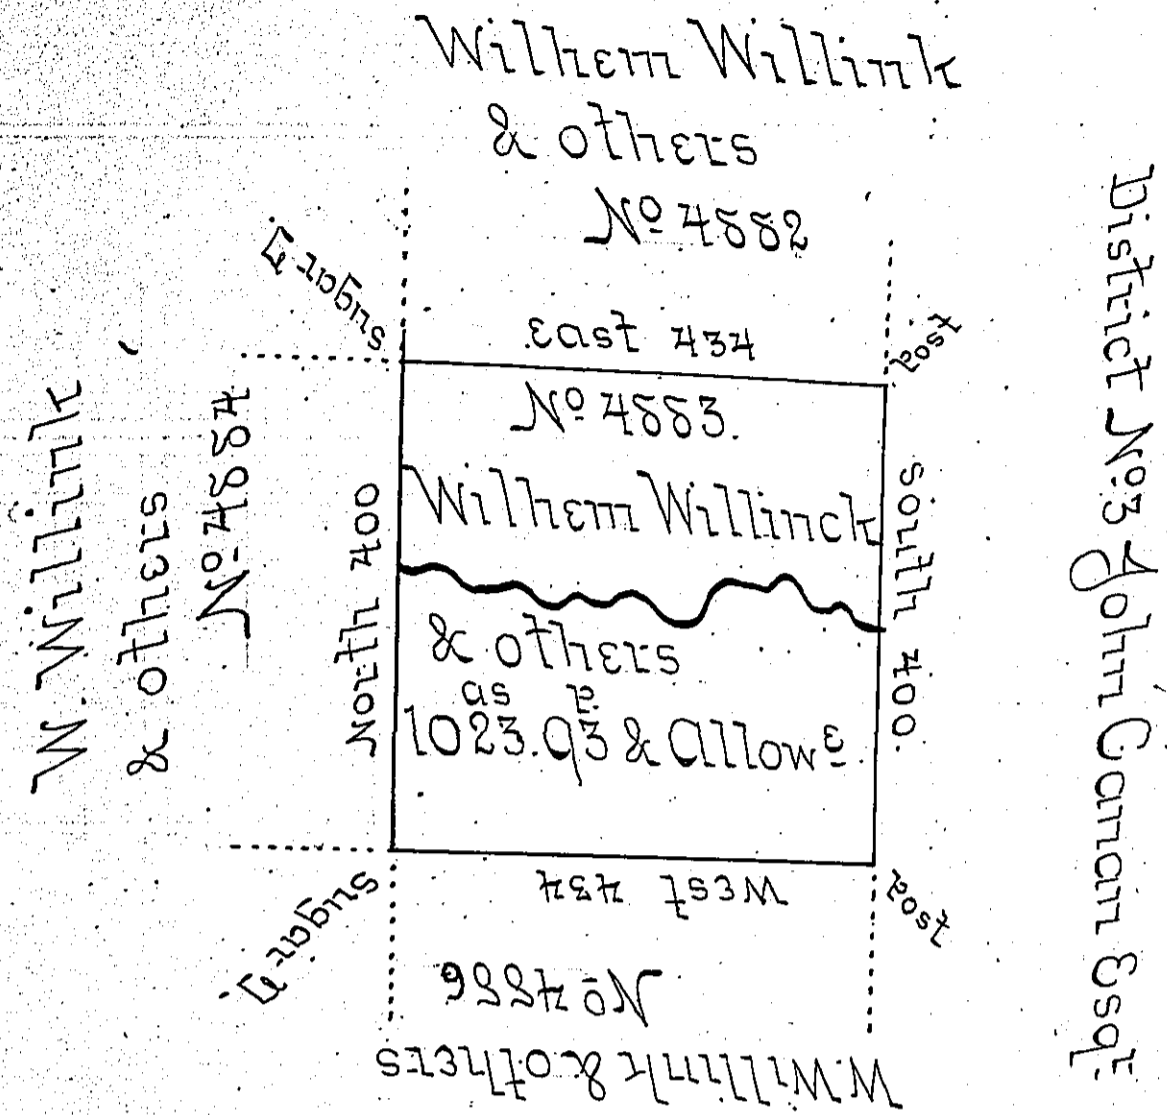 Wilhem Willink
& others
Nº 4882
Sugar T.
East 434
Post
Nº 4883.
Wilhem Willinck
& others
as p.
1023.93 & Allowe.
North 400
South 400.
W. Willink
& others
Nº 4884
West 434
Sugar T.
Post
Nº 4886
W. Willink & others
District Nº 3 John Canan Esqr.